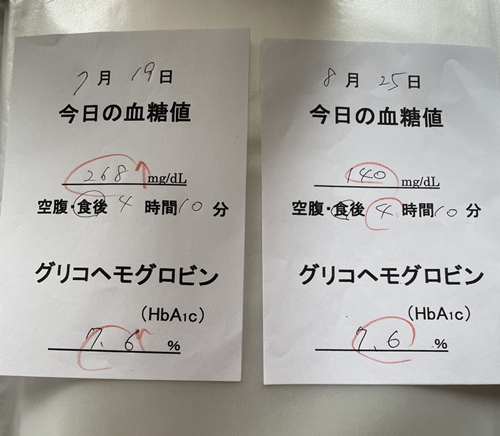 7月19日
今日の血糖値
268 mg/dL
空腹・食後 4時間10分
グリコヘモグロビン
(HbA1c)
7.6 %
8月25日
今日の血糖値
140 mg/dL
空腹・食後 4時間10分
グリコヘモグロビン
(HbA1c)
7.6 %